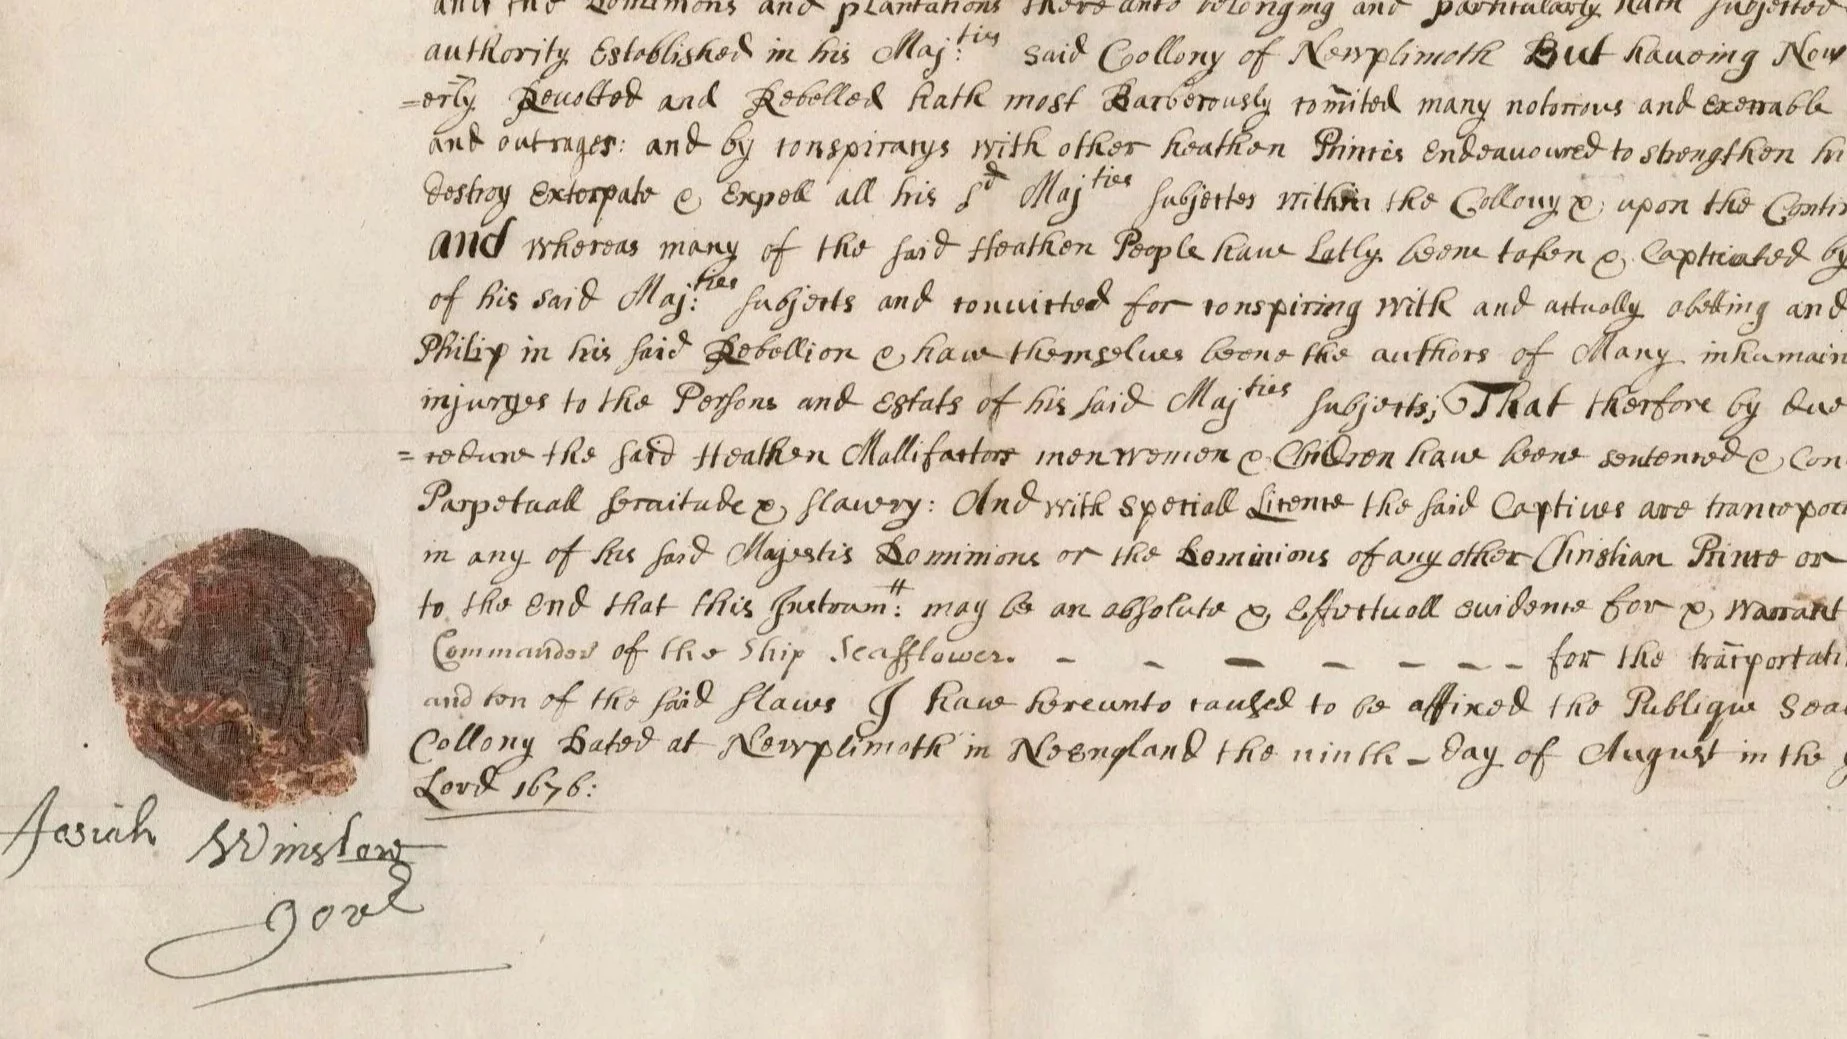 and the Dominions and plantations there unto belonging and particularly hath subjected
authority Established in his Maj:ties said Collony of Newplimoth But haveing Now
=erly Revolted and Rebelled hath most Barberously comited many notorious and execrable
and outrages: and by conspiracys with other heathen Princis endeavoured to strengthen hi
destroy Exterpate & Expell all his sd Majties subjectes within the Collony & upon the Contin
and whereas many of the said Heathen People have Latly beene taken & Captivated by
of his said Maj:ties subjects and convicted for conspiring with and actually abetting and
Philip in his said Rebellion & have themselves beene the authors of Many inhumain
injuryes to the Persons and Estats of his said Majties subjects; That therfore by due
=cedure the said Heathen Mallifactors men women & Children have beene sentenced & Con
Perpetuall servitude & slavery: And with speciall Licence the said Captives are transport
in any of his said Majestis Dominions or the Dominions of any other Christian Prince or
to the End that this Instrumtt: may be an absolute & Effectuall evidence for & warrant
Commander of the Ship Seafflower. – – – – – – – for the trāsportati
and ten of the said slaves I have hereunto caused to be affixed the Publique Sea
Collony Dated at Newplimoth in Neengland the ninth – day of August in the y
Lord 1676:
Josiah Winslow
Govr